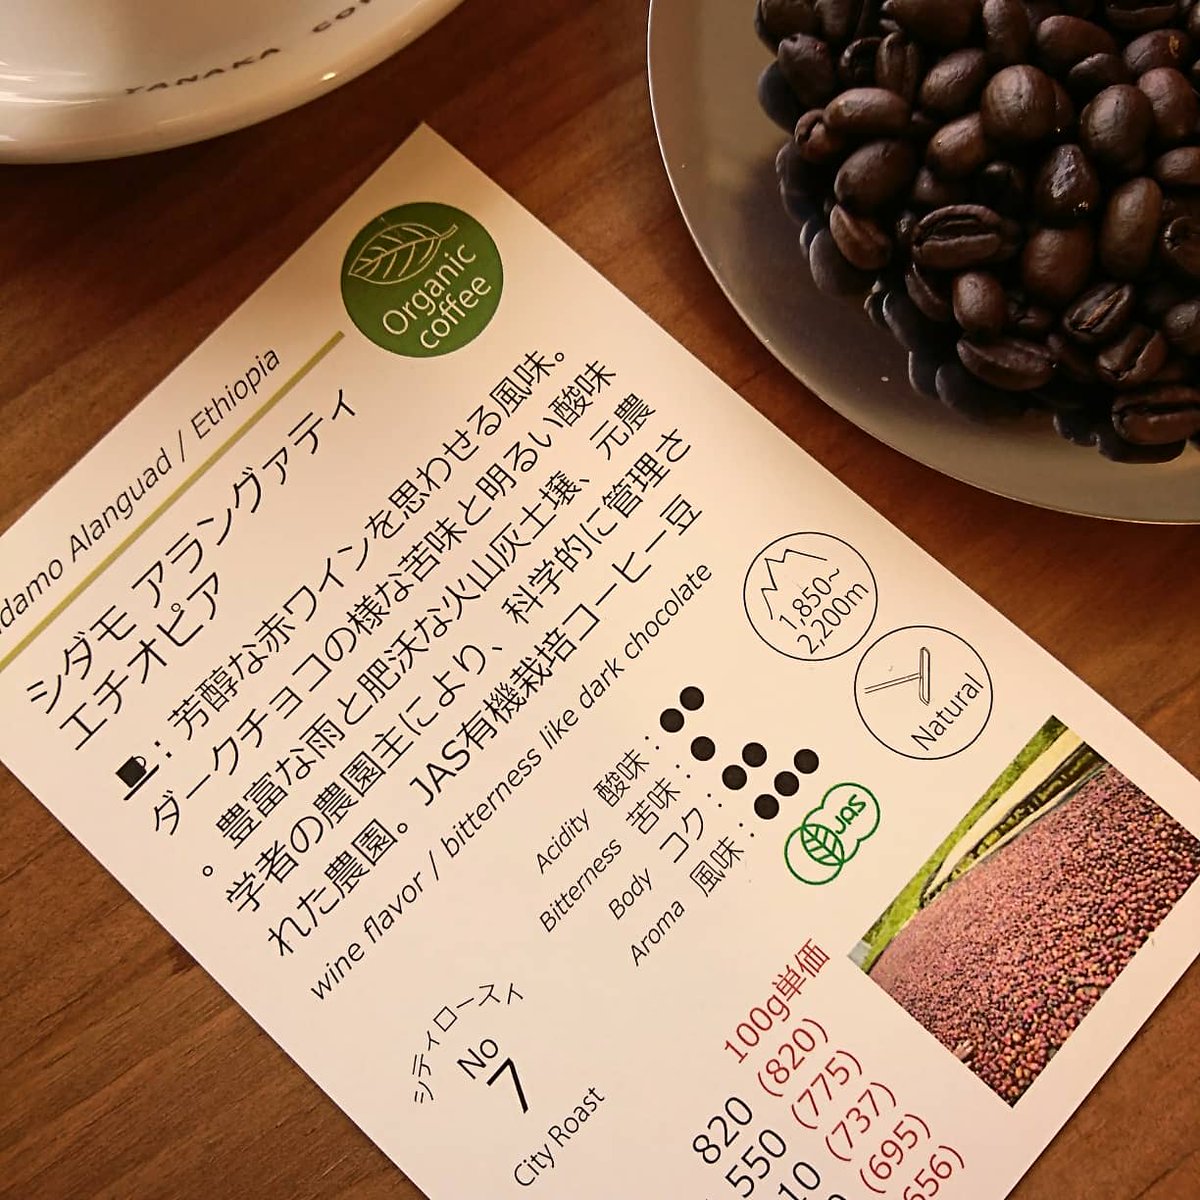 TANAKA
Organic
coffee
Alanguad / Ethiopia
シダモ アラングァティ
エチオピア
：芳醇な赤ワインを思わせる風味。
ダークチョコの様な苦味と明るい酸味
。豊富な雨と肥沃な火山灰土壌、元農
学者の農園主により、科学的に管理さ
れた農園。JAS有機栽培コーヒー豆
wine flavor / bitterness like dark chocolate
1,850~
2,200m
Natural
Acidity 酸味：●●
Bitterness 苦味：●
Body コク：●●
Aroma 風味：●●●
JAS
シティロースイ
No
7
City Roast
100g単価
820 (820)
550 (775)
(737)
(695)